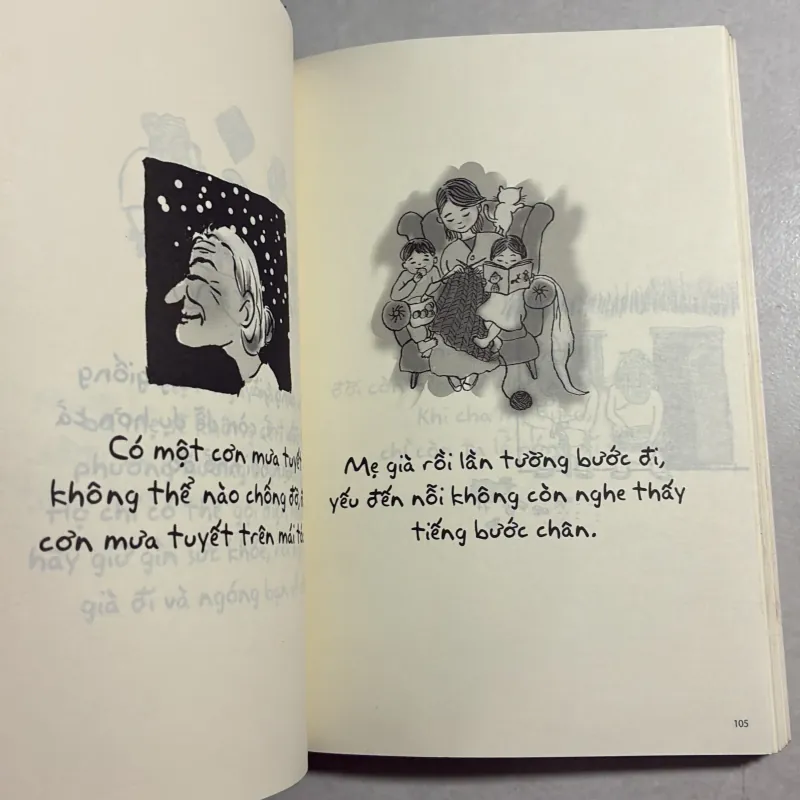 Có một cơn mưa tuyết
không thể nào chống đỡ,
cơn mưa tuyết trên mái
Mẹ già rồi lần tường bước đi,
yếu đến nỗi không còn nghe thấy
tiếng bước chân.
105